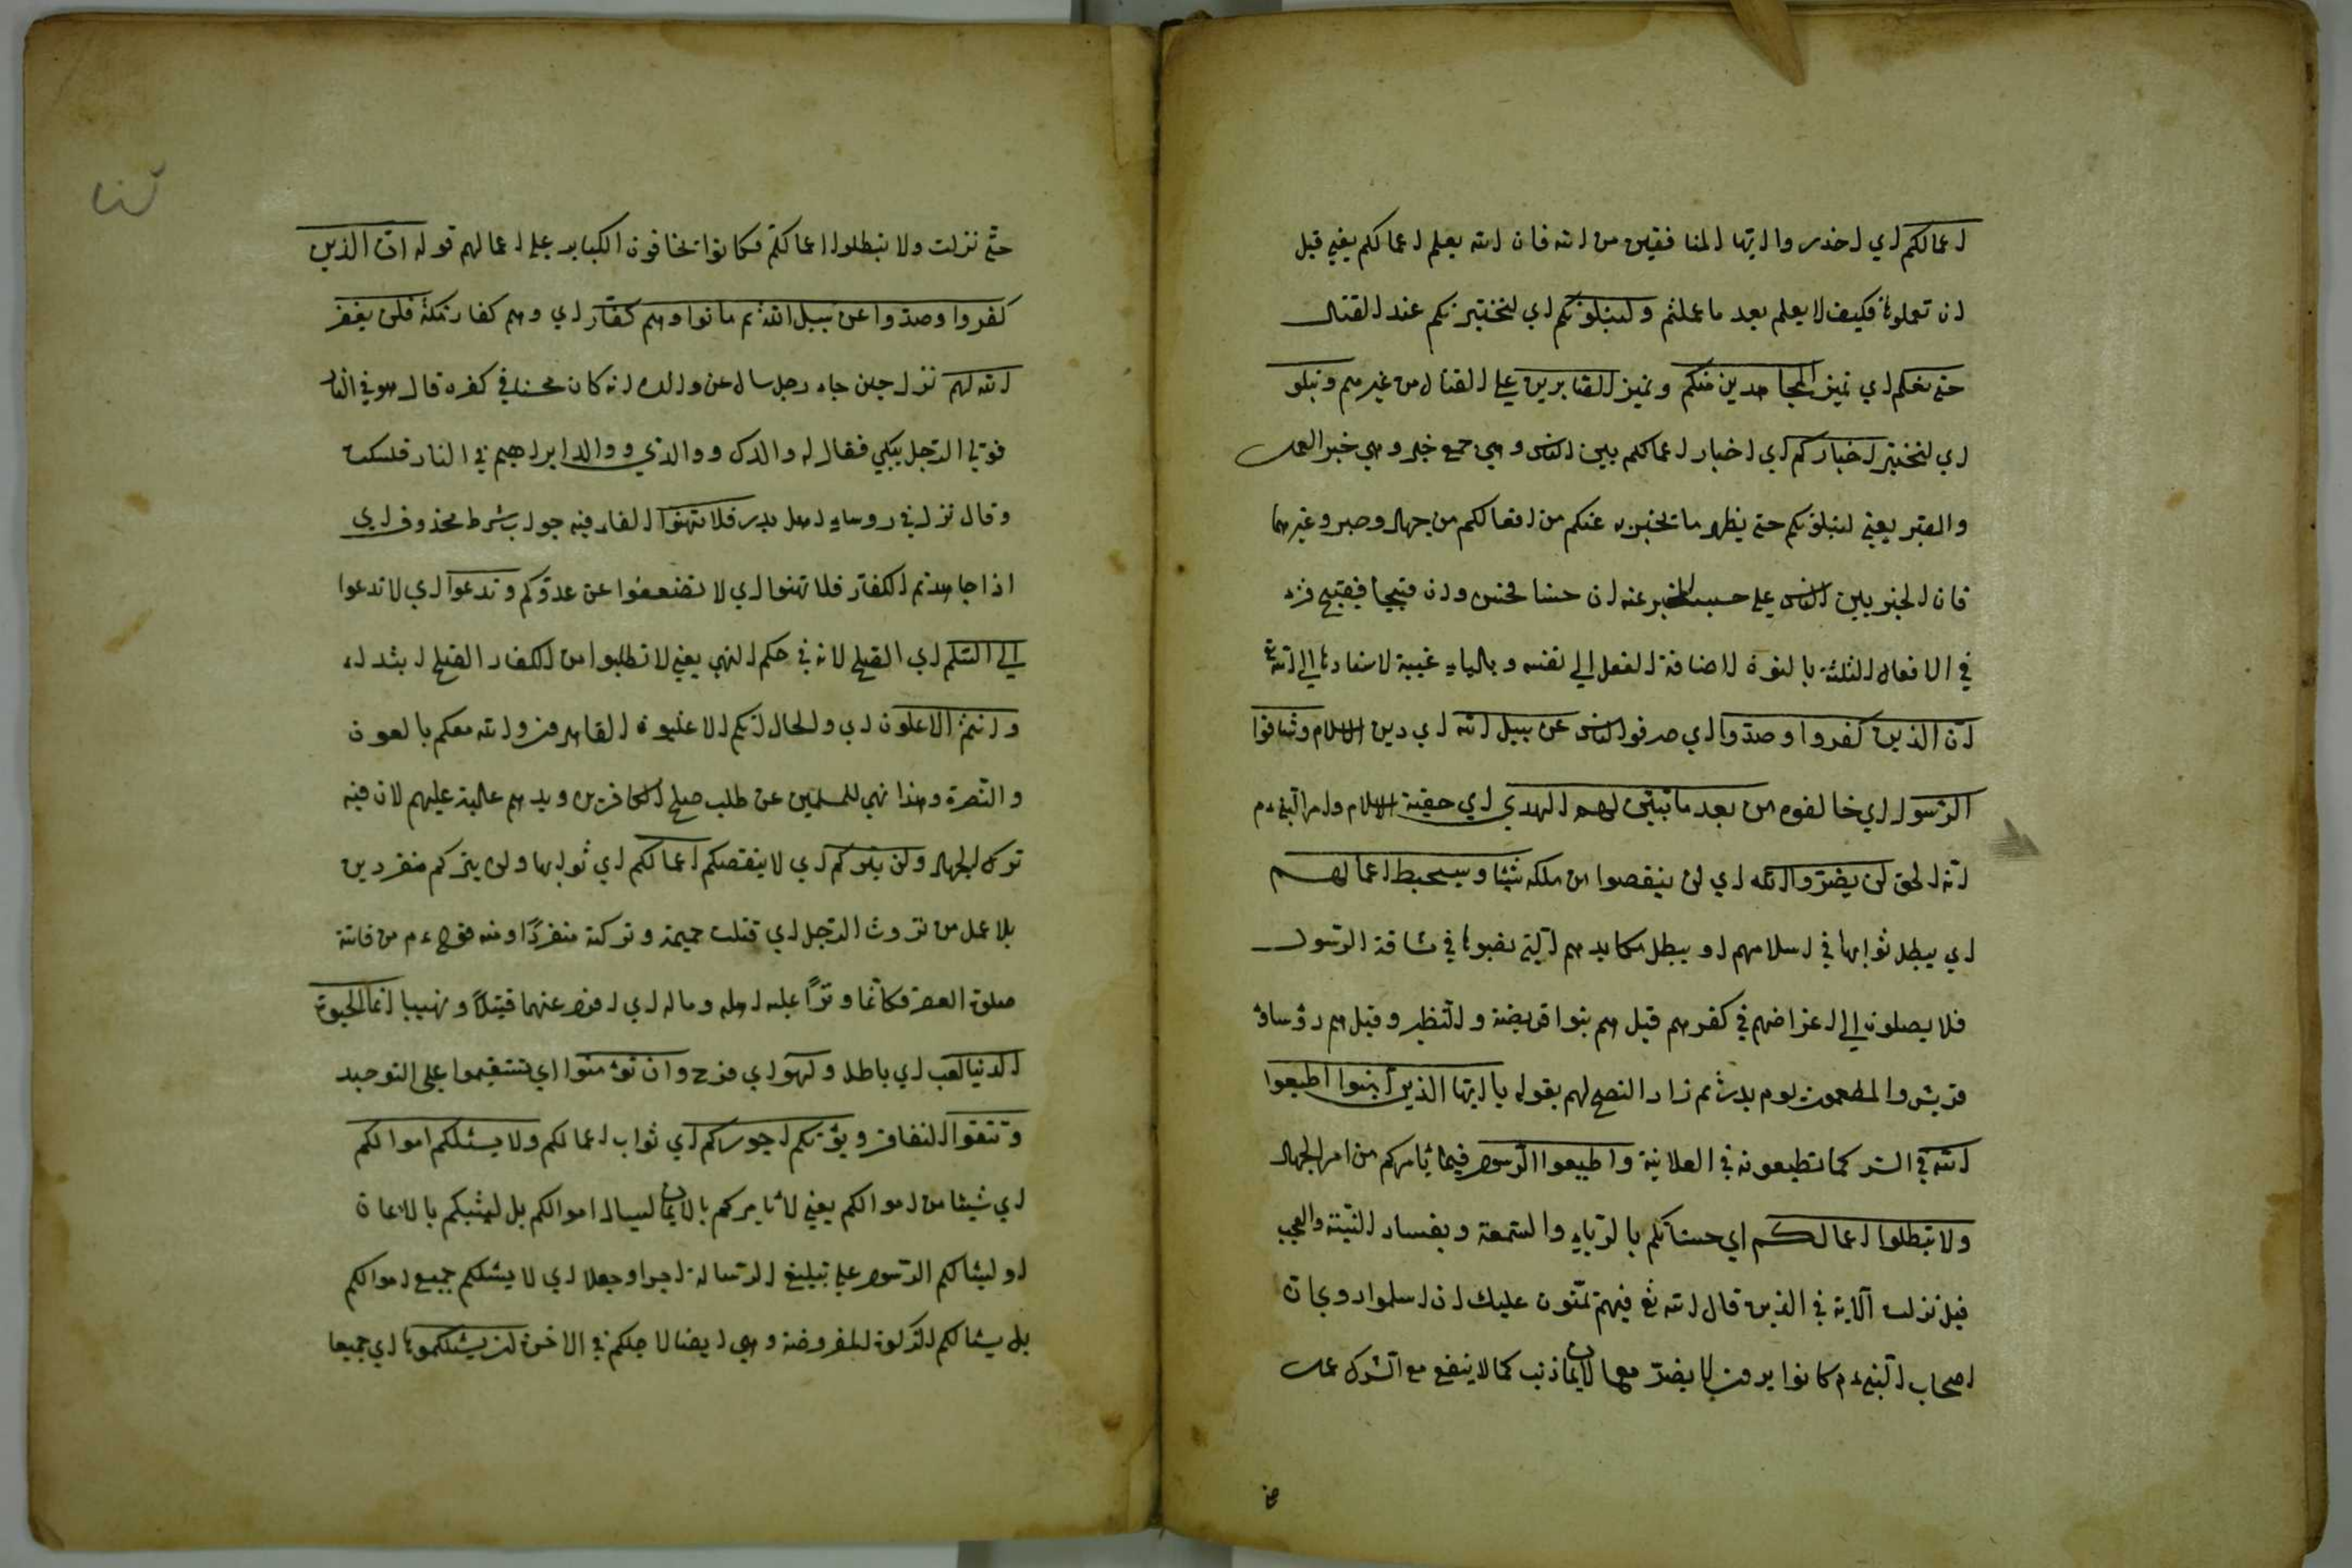 اعمالكم اي احذروا ايها المنافقين من الله فان الله يعلم اعمالكم يعني قبل
ان تعملوها فكيف لا يعلم بعد ما عملتم ولنبلونكم اي لنختبرنكم عند القتال
حتى نعلم اي نميز المجاهدين منكم ونميز الصابرين على القتال من غيرهم ونبلو
اي لنختبر اخباركم اي اخبار اعمالكم بين الناس وهي جمع خبر وهي خبر العمل
والصبر يعني لنبلونكم حتى يظهر ما تخبرون عنكم من افعالكم من جهاد وصبر وغيرهما
فان الخبر بين الناس على حسب المخبر عنه ان حسنا فحسن وان قبيحا فقبيح قرء
في الافعال الثلثة بالنون لاضافة الفعل الى نفسه وبالياء غيبة لاسنادها الى الله تع
ان الذين كفروا وصدوا اي صرفوا الناس عن سبيل الله اي دين الاسلام وشاقوا
الرسول اي خالفوه من بعد ما تبين لهم الهدى اي حقية الاسلام وامر النبي ءم
انه الحق لن يضروا الله اي لن ينقصوا من ملكه شيئا وسيحبط اعمالهم
اي يبطل ثوابها في اسلامهم او يبطل مكايدهم التي نصبوها في مشاقة الرسول
فلا يصلون الى اعراضهم في كفرهم قيل هم بنوا قريضة والنظير وقيل هم رؤساؤ
قريش والمطعمون يوم بدر ثم زاد النصح لهم بقوله يا ايها الذين آمنوا اطيعوا
الله في السر كما تطيعونه في العلانية واطيعوا الرسول فيما يامركم من امر الجهاد
ولا تبطلوا اعمالكم اي حسناتكم بالرياء والسمعة وبفساد النية والعجب
قيل نزلت الآية في الذين قال الله تع فيهم يمنون عليك ان اسلموا روى ان
اصحاب النبي ءم كانوا يرون لا يضر مع الايمان ذنب كما لا ينفع مع الشرك عمل
حتى نزلت ولا تبطلوا اعمالكم فكانوا يخافون الكبائر على اعمالهم قوله ان الذين
كفروا وصدوا عن سبيل الله ثم ماتوا وهم كفار اي وهم كفار مكة فلن يغفر
الله لهم نزل حين جاء رجل سال عن والده انه كان محسنا في كفره قال هو في النار
فولى الرجل يبكي فقال له والدك ووالدي ووالد ابراهيم في النار فسكت
وقال نزل في روساء اهل بدر فلا تهنوا الفاء فيه جواب شرط محذوف اي
اذا جاهدتم الكفار فلا تهنوا اي لا تضعفوا عن عدوكم وتدعوا اي لا تدعوا
الى السلم اي الصلح لانه في حكم النهي يعني لا تطلبوا من الكفار الصلح ابتداء
وانتم الاعلون اي والحال انكم الاغلبون القاهرون والله معكم بالعون
والنصرة وهذا نهي للمسلمين عن طلب صلح الكافرين ويدهم عالية عليهم لان فيه
ترك الجهاد ولن يتركم اي لا ينقصكم اعمالكم اي ثوابها ولن يتركم منفردين
بلا عمل من تروت الرجل اي قتلت حميمه وتركته منفردا ومنه قوله ءم من فاتته
صلوة العصر فكانما وترا عليه اهله وماله اي افرد عنهما قتيلا ونهيبا انما الحيوة
الدنيا لعب اي باطل ولهو اي فرح وان تؤمنوا اي تستقيموا على التوحيد
وتتقوا النفاق ويؤتكم اجوركم اي ثواب اعمالكم ولا يسئلكم اموالكم
اي شيئا من اموالكم يعني لا يامركم بالايمان ليسال اموالكم بل ليثيبكم بالايمان
او ليسالكم الرسول على تبليغ الرسالة اجرا وجعلا اي لا يسئلكم جميع اموالكم
بل يسالكم الزكوة المفروضة وهي ايضا لاجلكم في الاخرة ان يسئلكموها اي جميعا